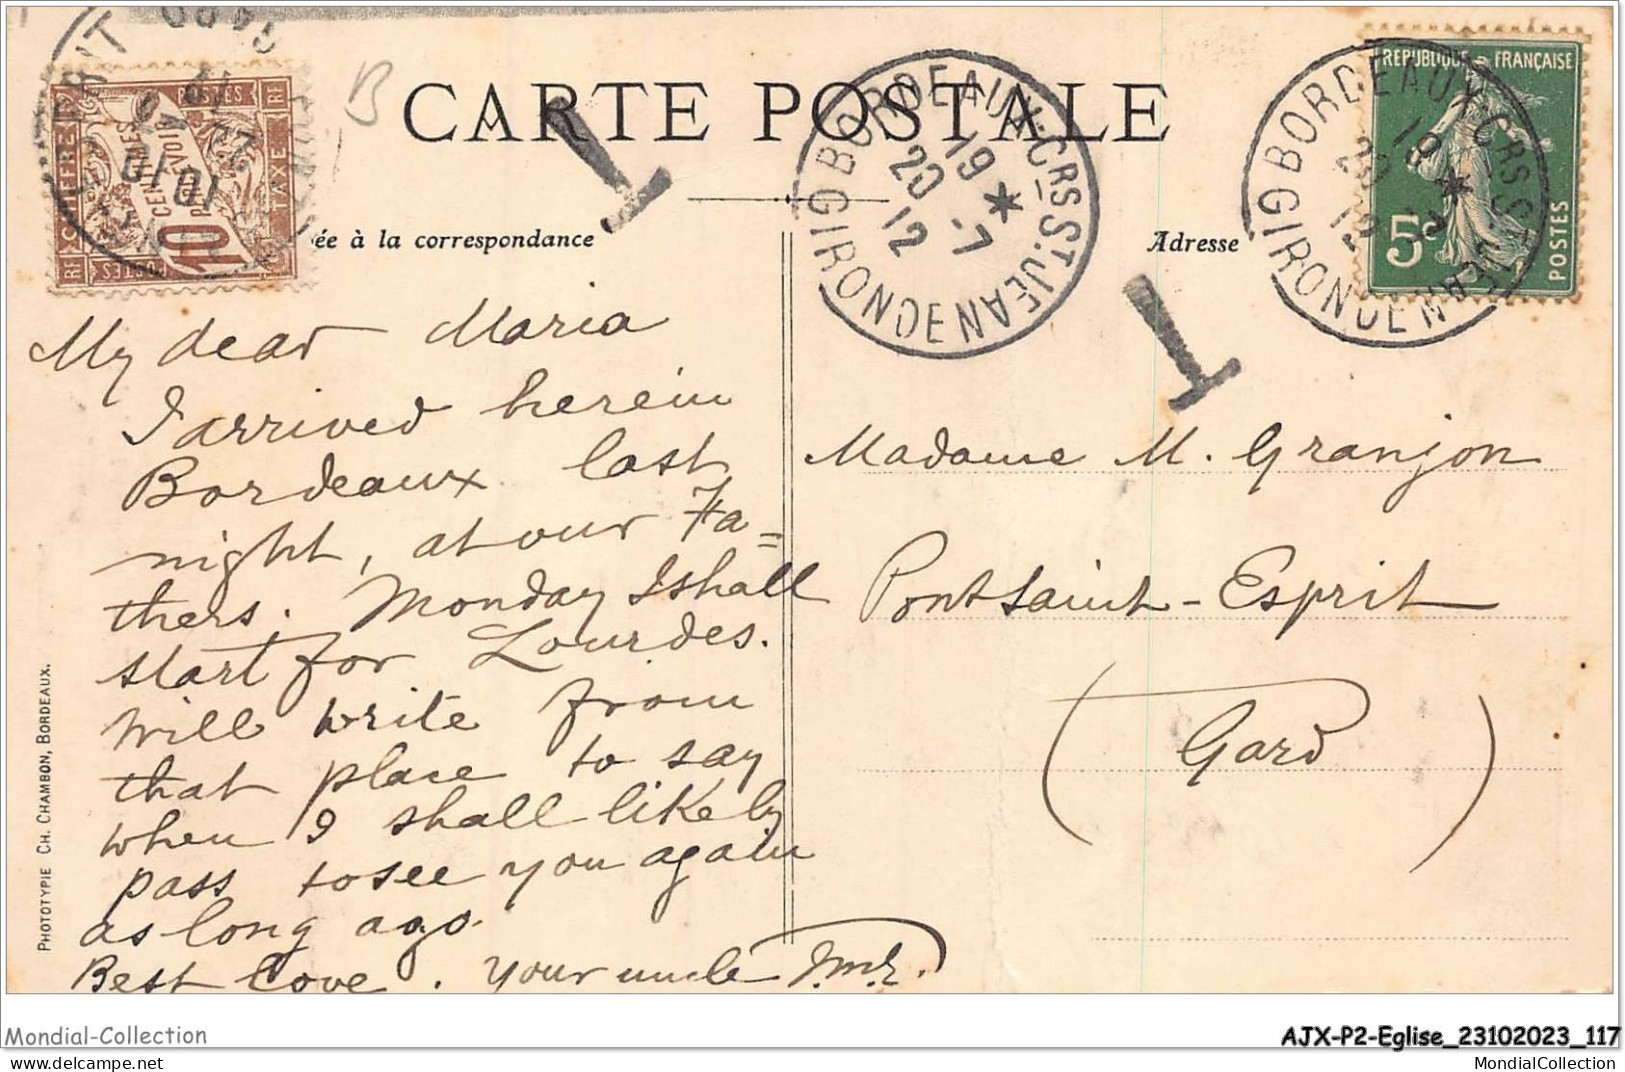 CARTE POSTALE
B
ée à la correspondance
Adresse
RF POSTES RF
A CHIFFRE
TAXE
10 CENTIMES
À PERCEVOIR
RF POSTES
BORDEAUX-CRS ST JEAN
GIRONDE
19 *
20 -7
12
BORDEAUX-CRS ST JEAN
GIRONDE
19 *
REPUBLIQUE FRANÇAISE
5c
POSTES
T
T
My dear Maria
I arrived herein
Bordeaux last
night, at our Fa=
thers. Monday I shall
start for Lourdes.
Will write from
that place to say
when I shall likely
pass to see you again
as long ago.
Best love. Your uncle
Madame M. Granjon
Pont Saint-Esprit
(Gard)
PHOTOTYPIE CH. CHAMBON, BORDEAUX.
Mondial-Collection
AJX-P2-Eglise_23102023_117
MondialCollection